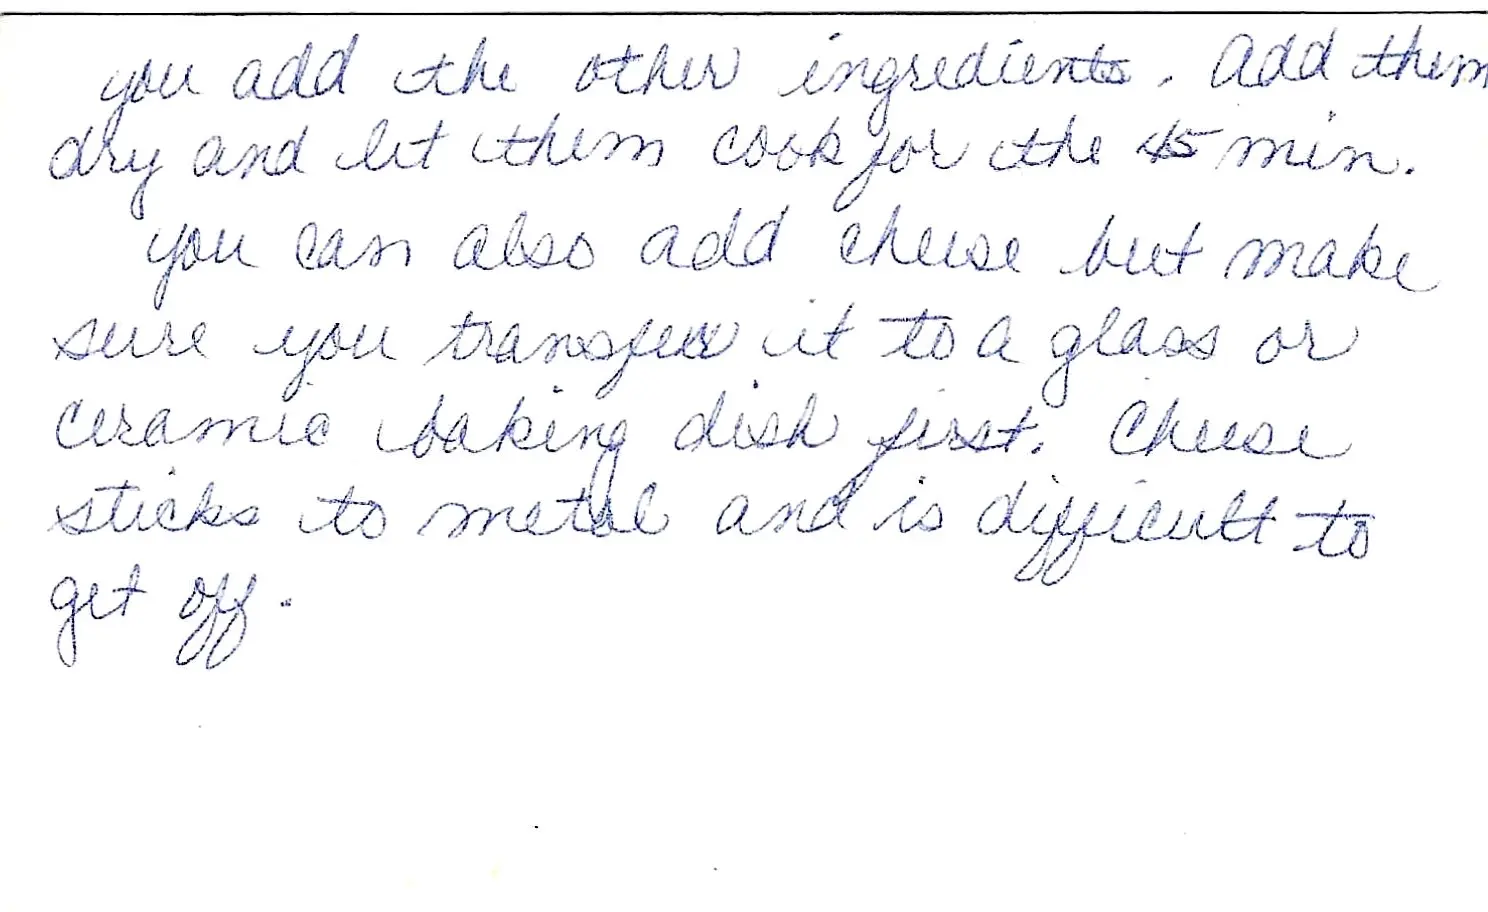 you add the other ingredients. Add them
dry and let them cook for the 45 min.
you can also add cheese but make
sure you transfer it to a glass or
ceramic baking dish first. Cheese
sticks to metal and is difficult to
get off.